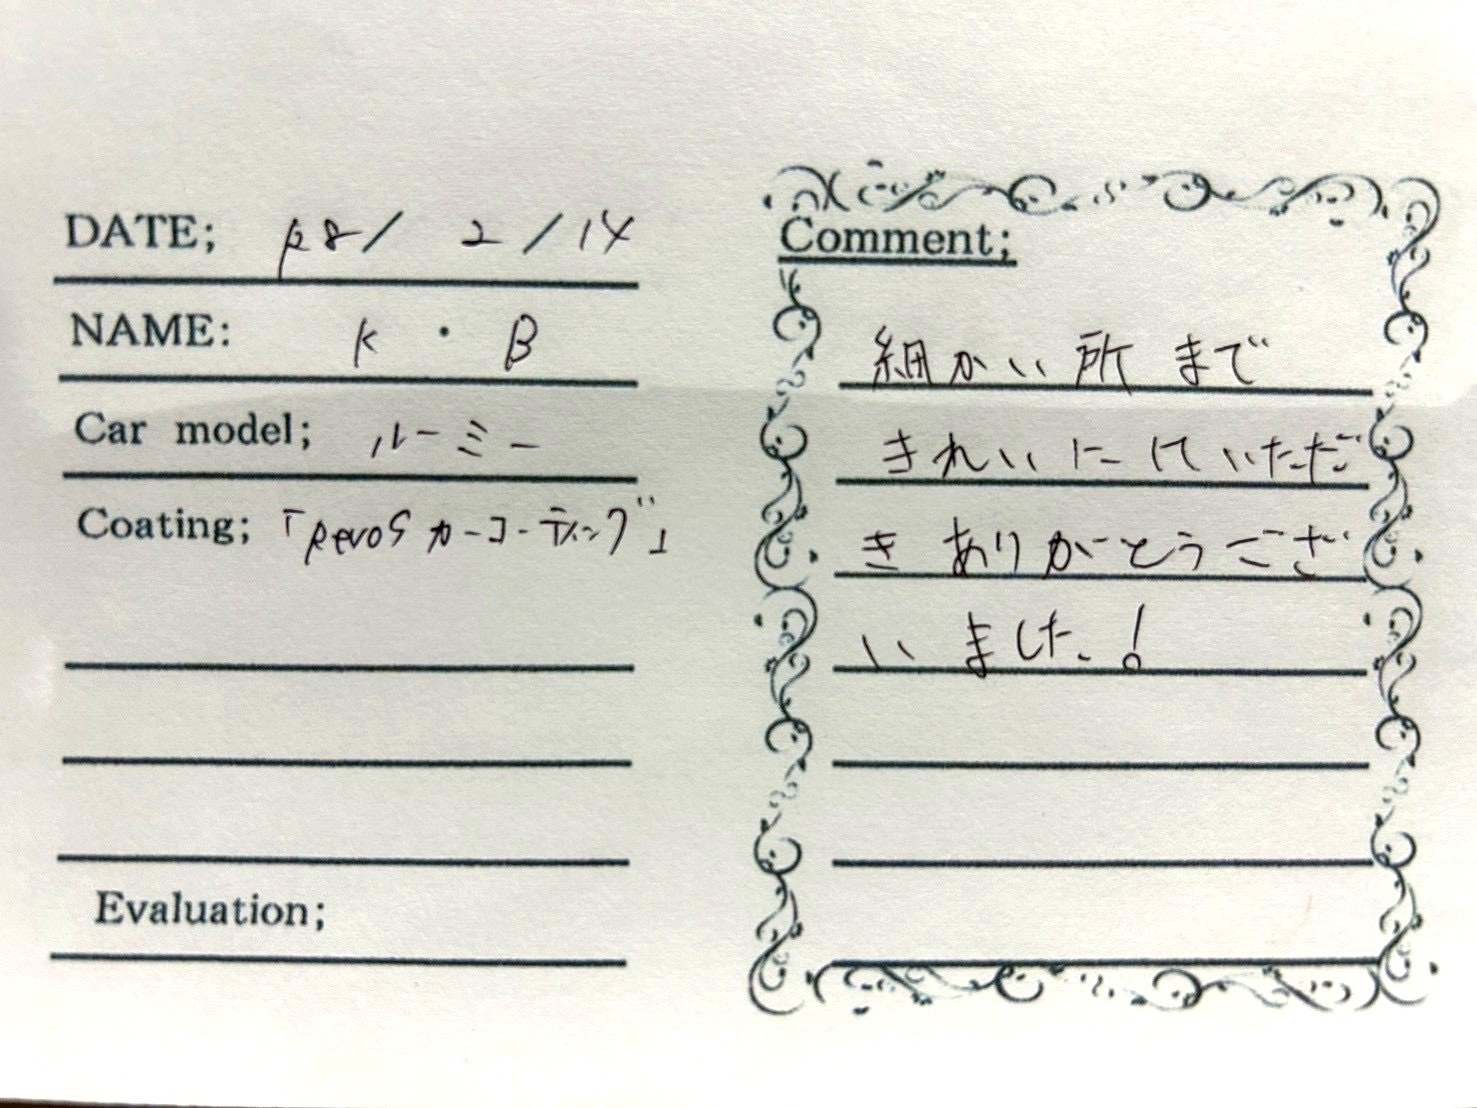 DATE; R8/ 2/14
NAME: K・B
Car model; ルーミー
Coating; 「RevoSカーコーティング」
Evaluation;
Comment;
細かい所まで
きれいにしていただ
きありがとうござ
いました!